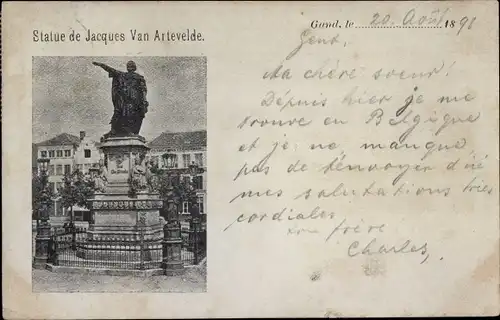 Statue de Jacques Van Artevelde.
Gand, le 20 Août 1898
Gent,
Ma chère soeur!
Dépuis hier je me
trouve en Belgique
et je ne manque
pas de t'envoyer
mes salutations très
cordiales
ton frère
Charles,